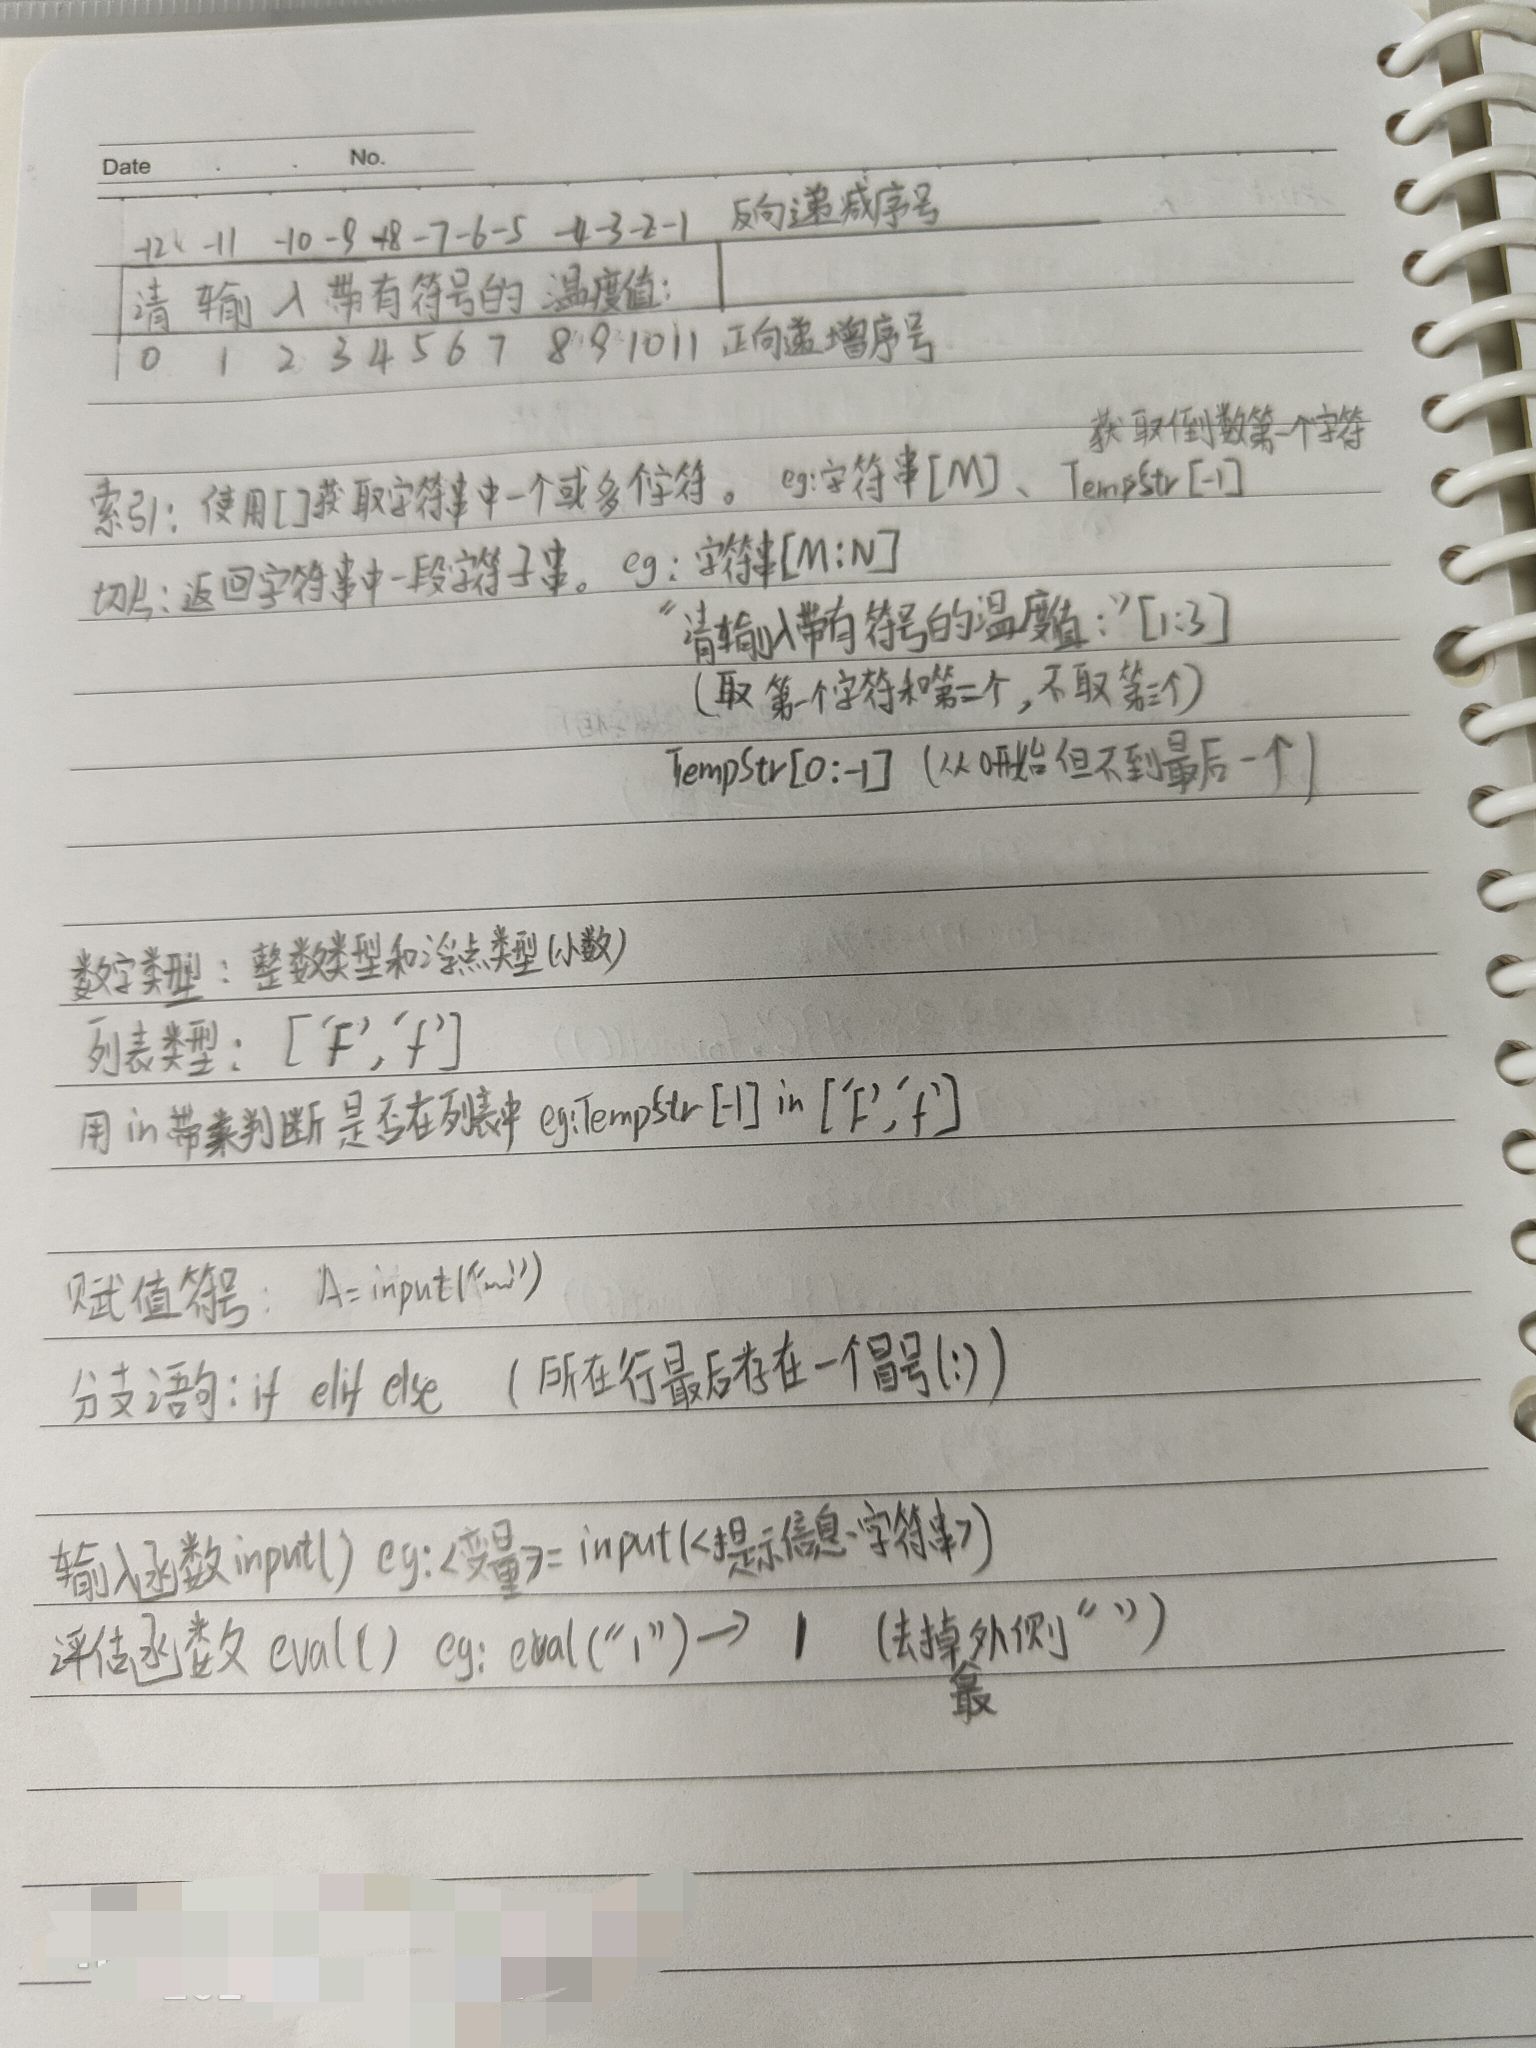 Date . . No.
-12 -11 -10 -9 -8 -7 -6 -5 -4 -3 -2 -1 反向递减序号
请 输 入 带有符号的 温度值:
0 1 2 3 4 5 6 7 8 9 10 11 正向递增序号
获取倒数第一个字符
索引: 使用[]获取字符串中一个或多个字符。 eg:字符串[M]、TempStr[-1]
切片: 返回字符串中一段字符子串。 eg: 字符串[M:N]
“请输入带有符号的温度值:”[1:3]
(取第一个字符和第二个,不取第三个)
TempStr[0:-1] (从0开始但不到最后一个)
数字类型: 整数类型和浮点类型(小数)
列表类型: ['F','f']
用in带来判断是否在列表中 eg:TempStr[-1] in ['F','f']
赋值符号: A=input("~~")
分支语句: if elif else (所在行最后存在一个冒号(:))
输入函数input() eg:<变量>=input(<提示信息字符串>)
评估函数 eval() eg: eval("1")→ 1 (去掉外侧“ ”)
最